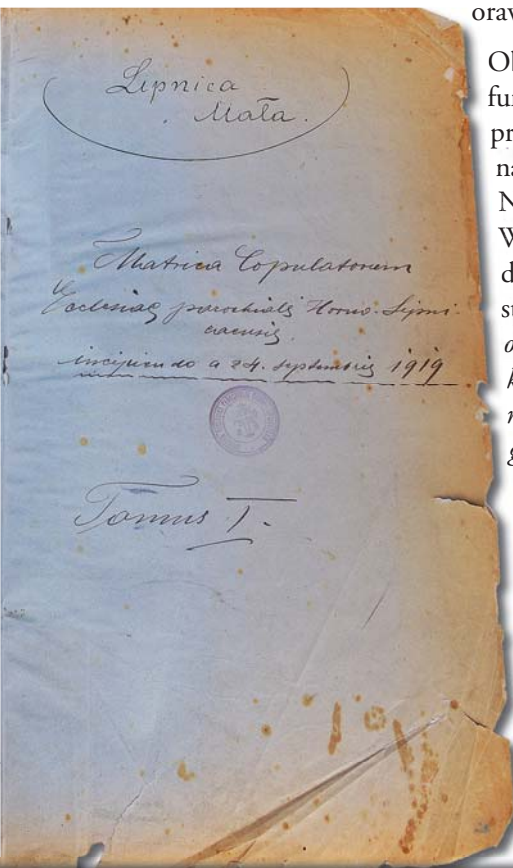 Lipnica
Mała.
Matrica Copulatorum
Ecclesiae parochialis Horno-Lipni-
caensis
incipiendo a 24. septembris 1919
Tomus I.